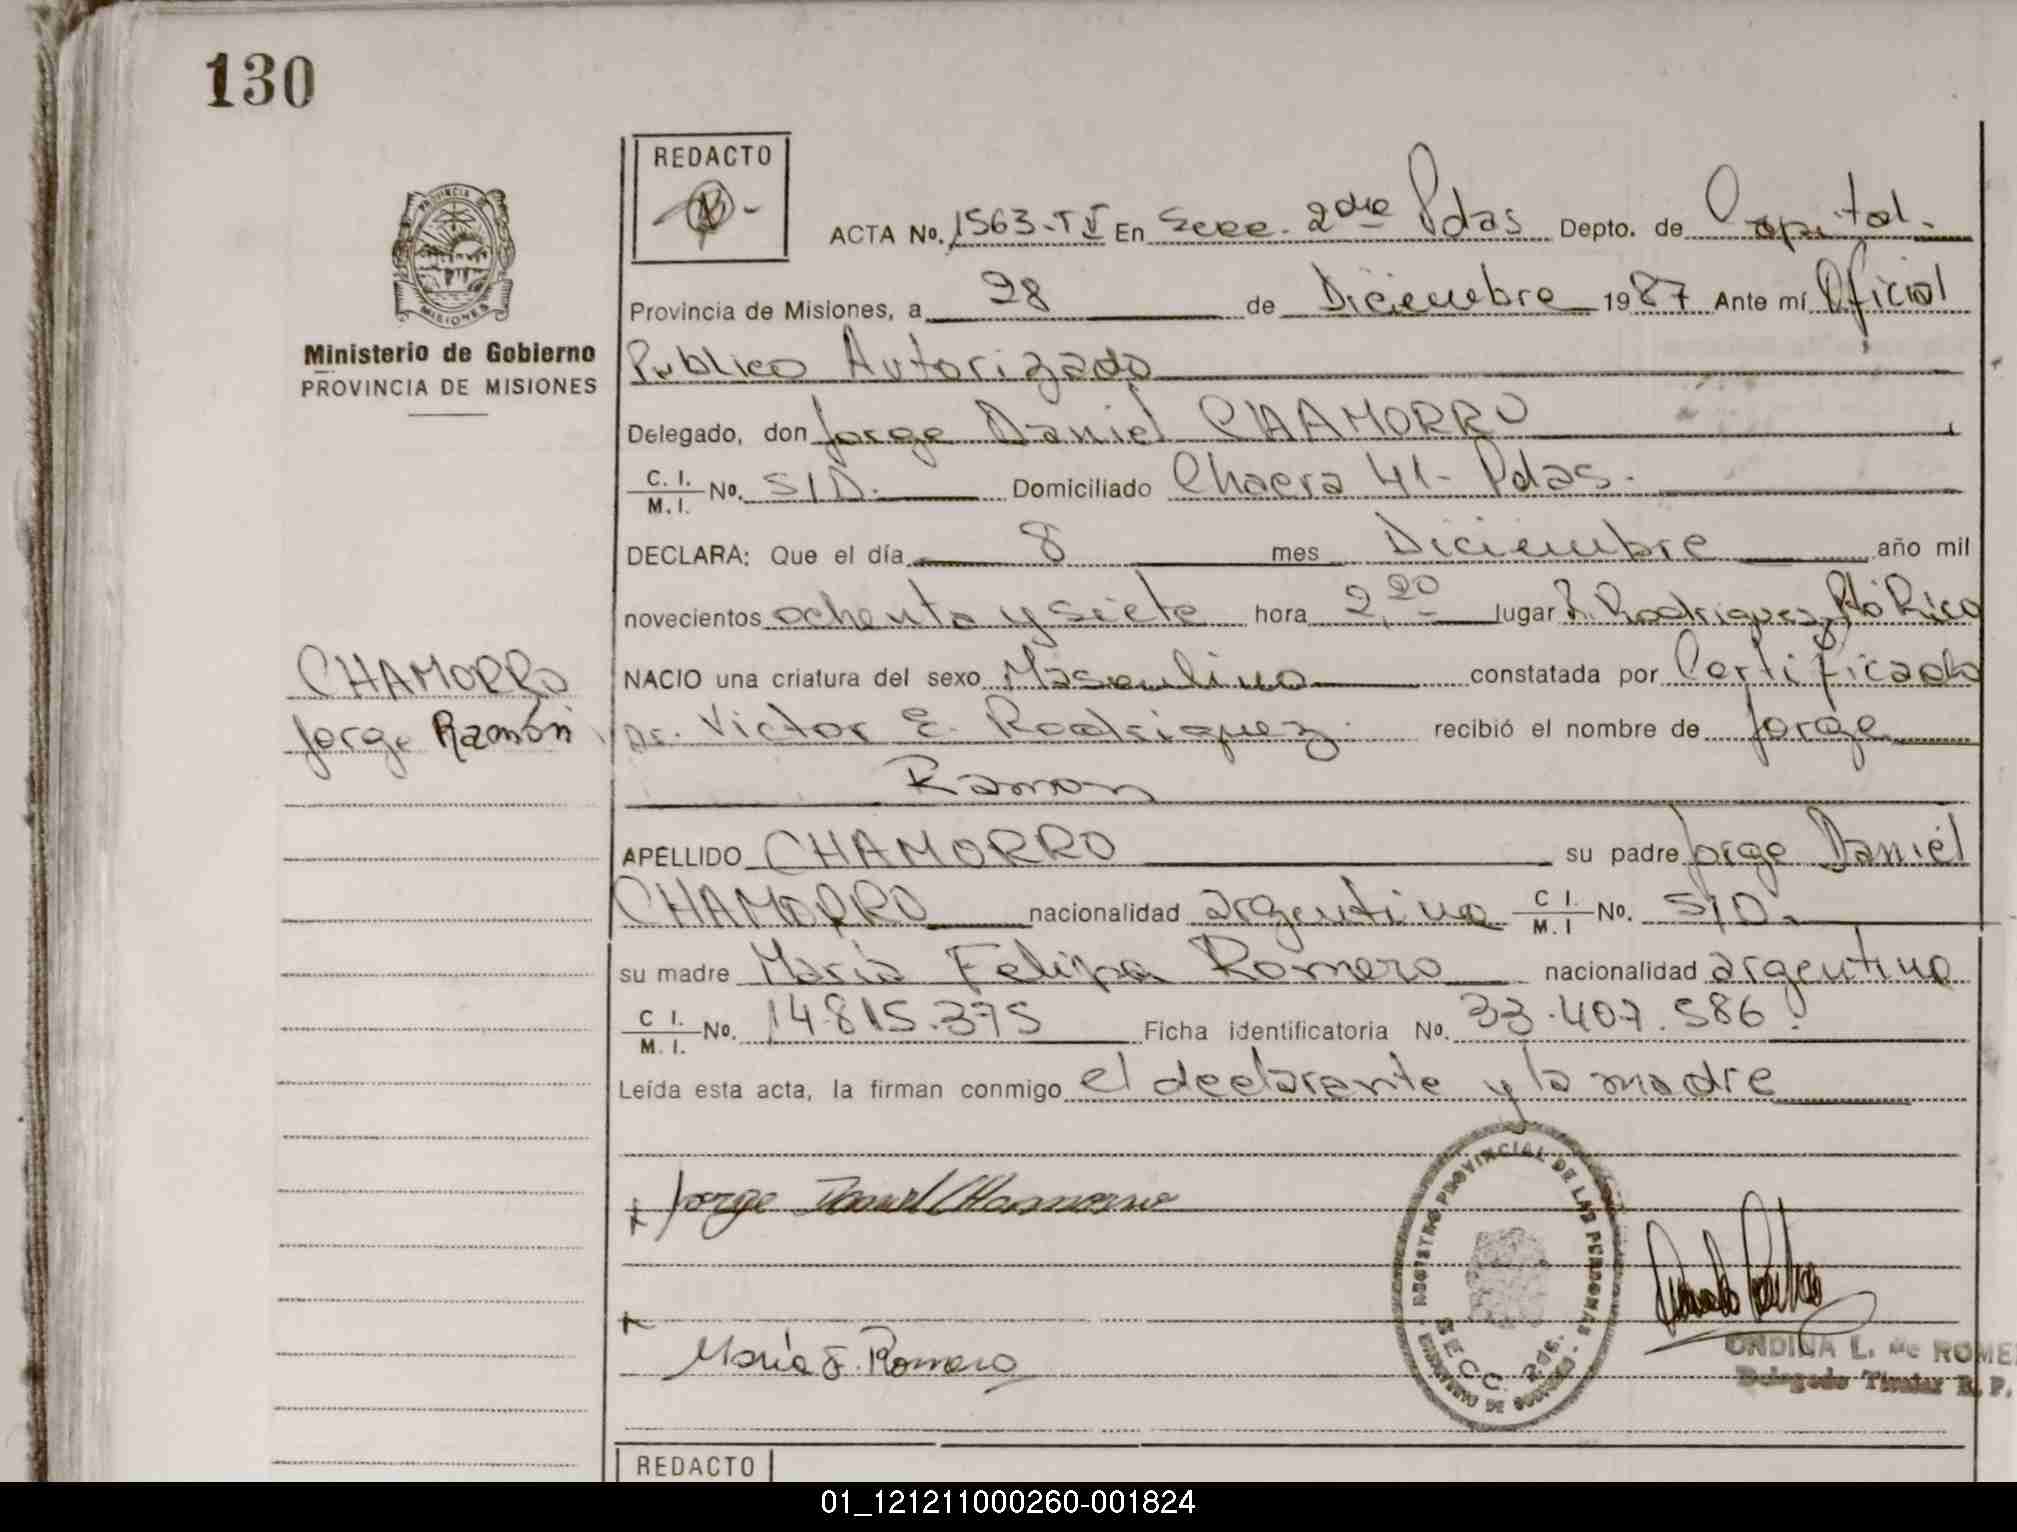 130
REDACTO
PROVINCIA DE
MISIONES
Ministerio de Gobierno
PROVINCIA DE MISIONES
ACTA No. 1563-TV En Secc. 2da Pdas Depto. de Capital.
Provincia de Misiones, a 28 de Diciembre 1987 Ante mí Oficial
Publico Autorizado
Delegado, don Jorge Daniel CHAMORRO
C. I. / M. I. No. S/D. Domiciliado Chacra 41- Pdas.
DECLARA: Que el día 8 mes Diciembre año mil
novecientos ochenta y siete hora 2,20 lugar R. Rodriguez Pto Rico
NACIO una criatura del sexo Masculino constatada por Certificado
CHAMORRO
Jorge Ramón
Dr. Victor E. Rodriguez. recibió el nombre de Jorge
Ramon
APELLIDO CHAMORRO su padre Jorge Daniel
CHAMORRO nacionalidad argentina C I. / M. I No. S/D.
su madre Maria Felipa Romero nacionalidad argentina
C I. / M. I. No. 14815.375 Ficha identificatoria No. 33.407.586.
Leída esta acta, la firman conmigo el declarante y la madre
Jorge Daniel Chamorro
REGISTRO PROVINCIAL DE LAS PERSONAS
SECC. 2da.
María F. Romero
ONDINA L. de ROME
Delegado Titular R. P.
REDACTO
01_121211000260-001824